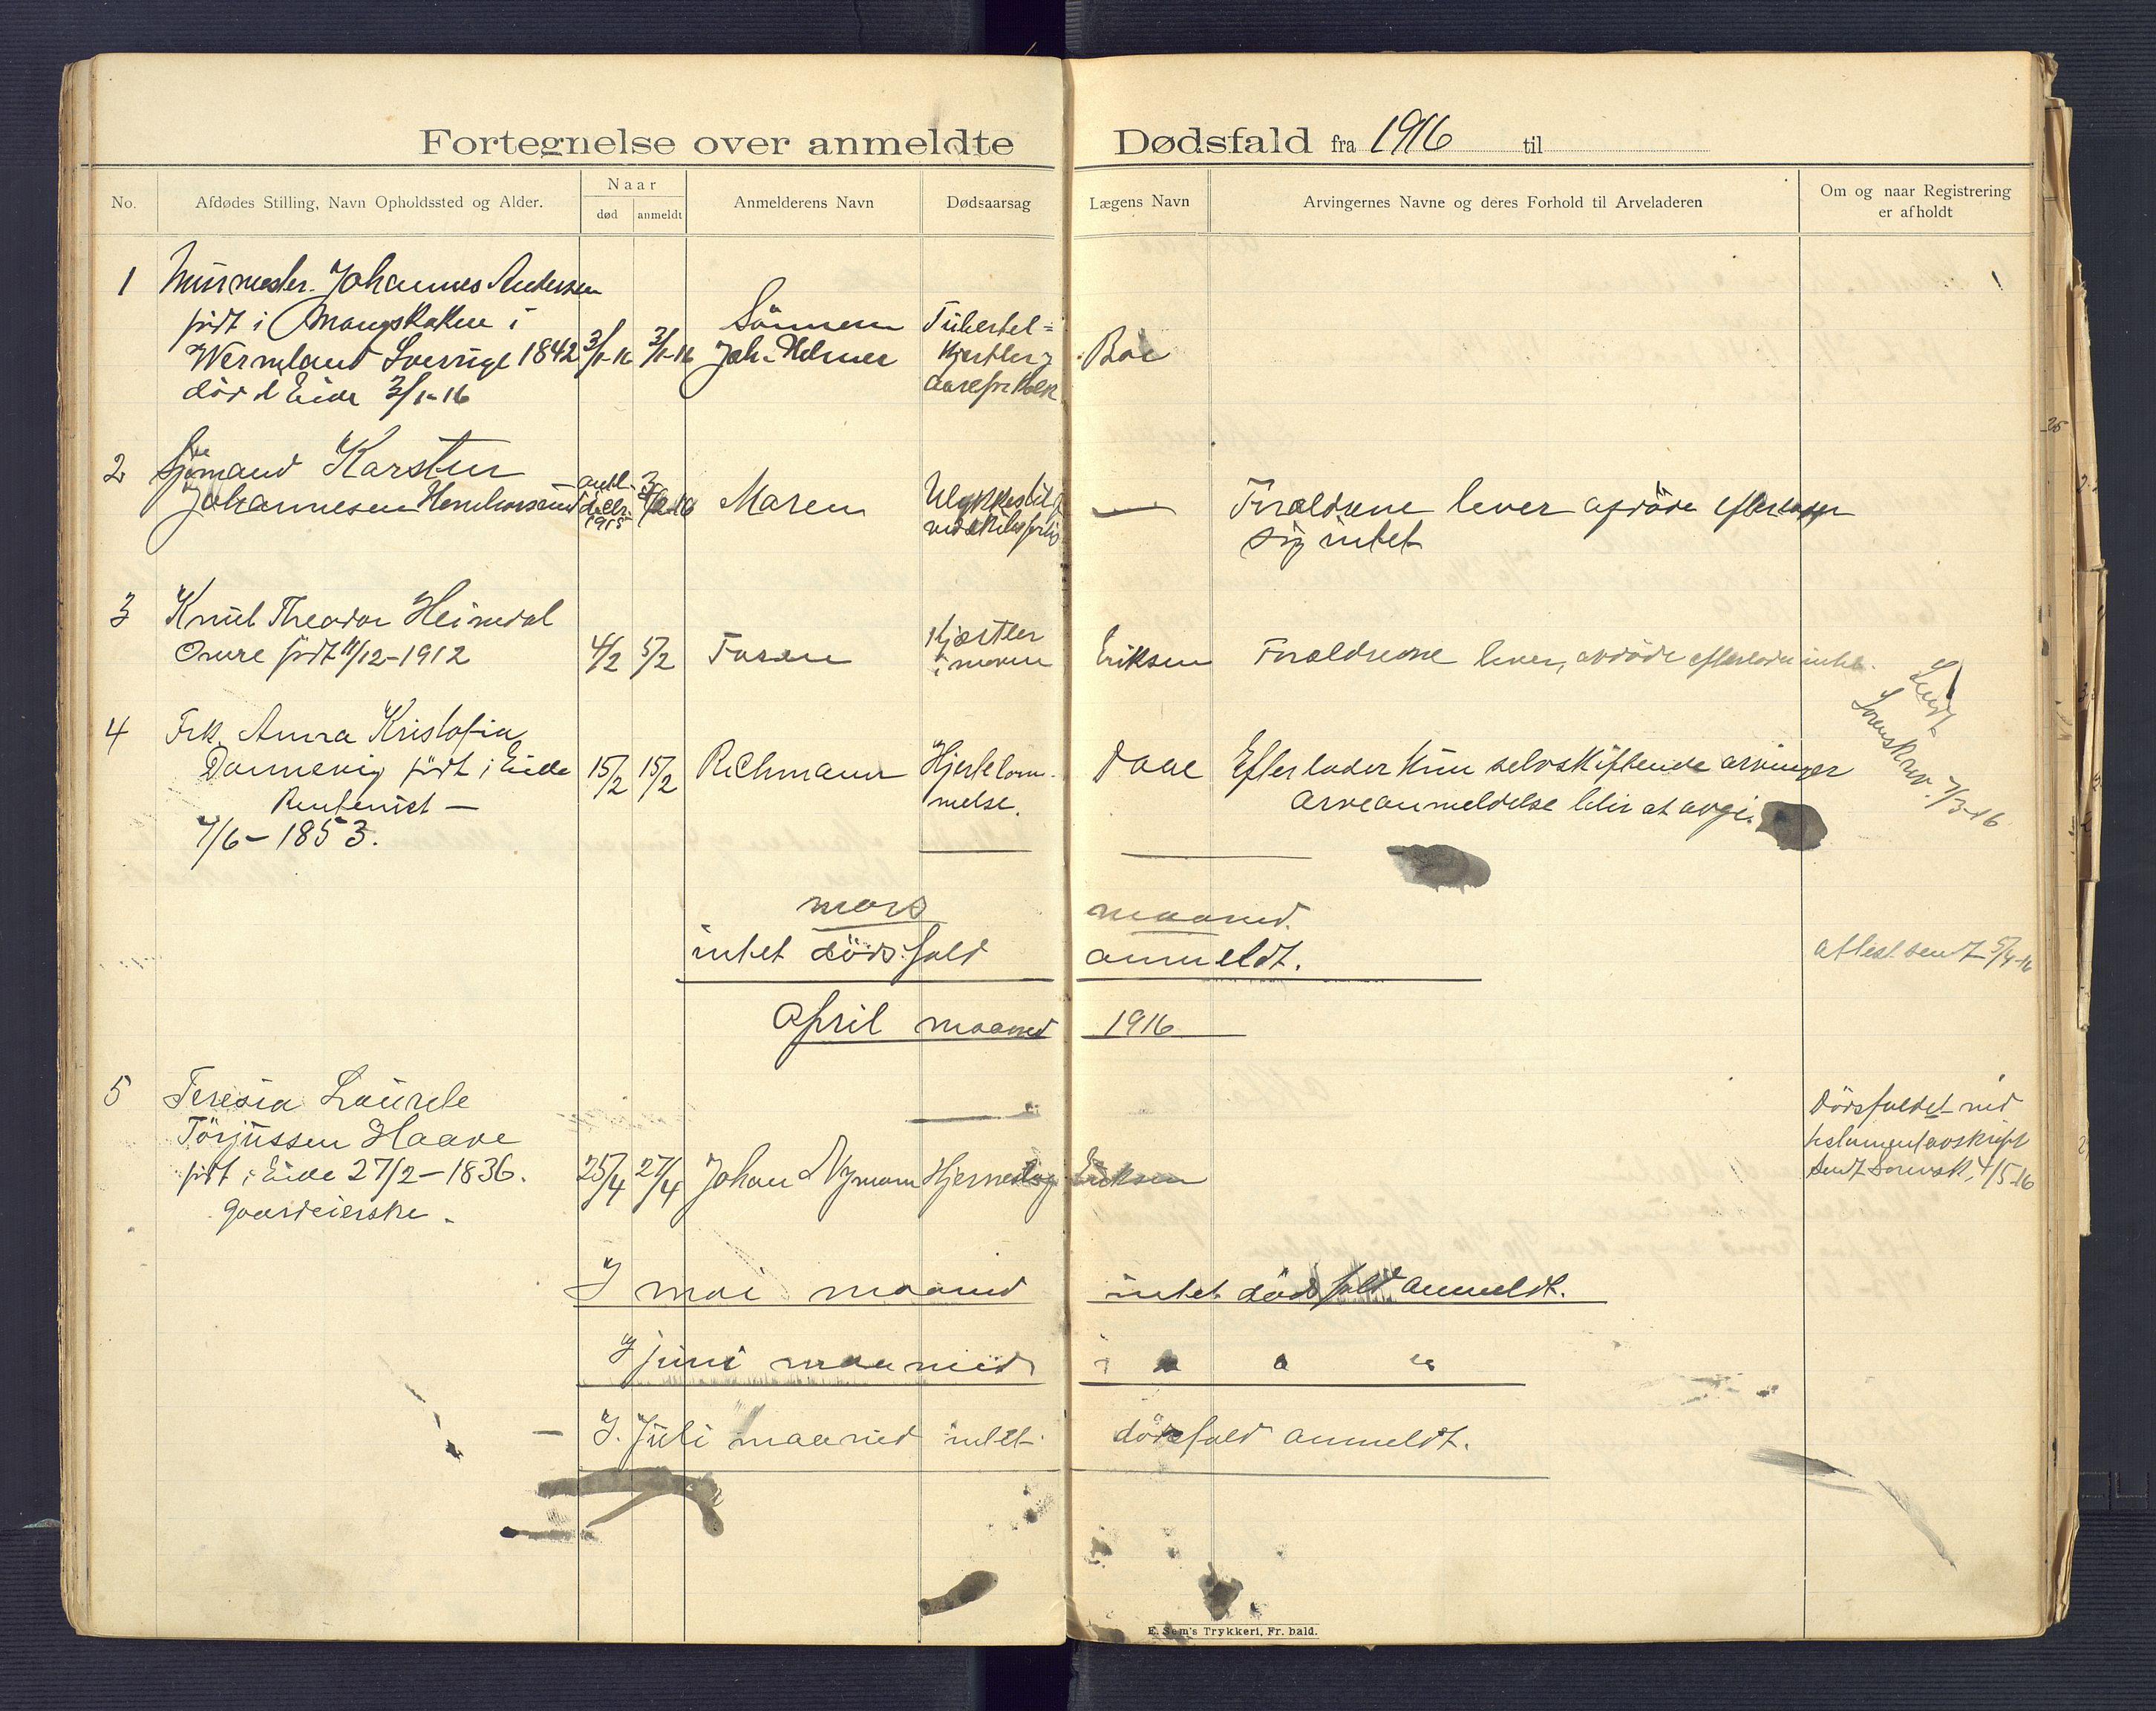 Fortegnelse over anmeldte Dødsfald fra 1916 til
No.
Afdødes Stilling, Navn Opholdssted og Alder.
Naar
død
anmeldt
Anmelderens Navn
Dødsaarsag
Lægens Navn
Arvingernes Navne og deres Forhold til Arveladeren
Om og naar Registrering
er afholdt
1
Murmester Johannes Andersen
født i Mangskoken i
Wermland Sverrige 1842
død i Eide 3/1-16
3/1-16
3/1-16
Sönnen
Joh. Helmer
Tuberkel=
Kjertler
Boe
2
Sjømand Karsten
Johannesen Homborsund
antl.
1915
Moren
Ulykkestilf
ved skibsforlis
—
Forældrene lever afdöde efterlader
sig intet
3
Knut Theodor Heimdal
Omre født 11/12-1912
4/2
5/2
Faren
Kjertler
i maven
Eriksen
Forældrene lever, avdöde efterlader intet.
4
Frk. Anna Kristofia
Dannevig født i Eide
Rentenist —
7/6-1853.
15/2
15/2
Richmann
Hjertelam-
melse.
Daae
Efterlader kun selvskiftende arvinger
Arveanmeldelse blir at avgi.
Sendt
Sorenskriv. 7/3-16
mars maaned.
intet dödsfald anmeldt.
attest sendt 5/4-16
April maaned 1916
5
Teresia Laurele
Törjussen Haave
født i Eide 27/2-1836.
gaardeierske.
25/4
27/4
Johan Nymann
Hjerneslag
Eriksen
Dödsfaldet med
testamentavskrift
sendt Sorensk. 4/5-16
I mai maaned intet dödsfald anmeldt.
I juni maaned " " " "
— I. Juli maaned intet dödsfald anmeldt.
E. Sem's Trykkeri, Fr. hald.